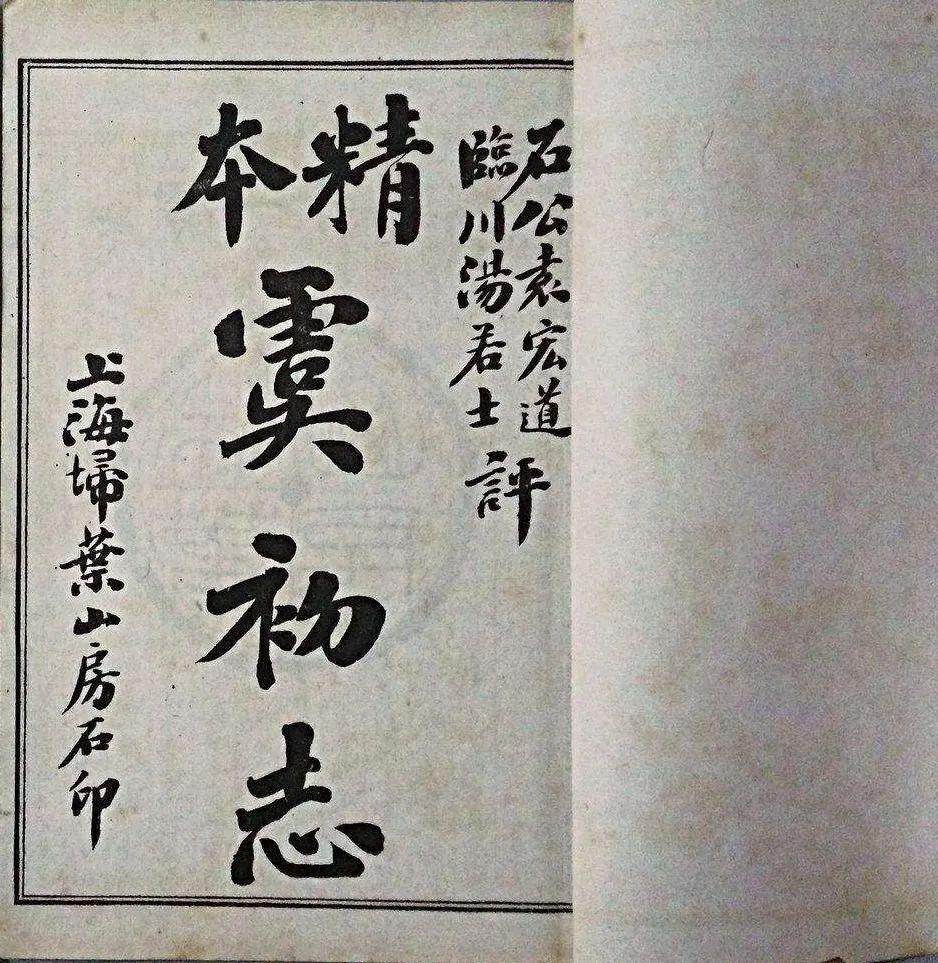 石公袁宏道
臨川湯若士
評
精本
虞初志
上海埽葉山房石印